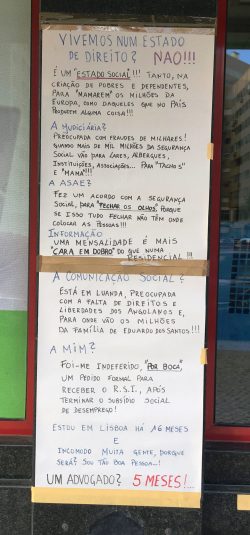 VIVEMOS NUM ESTADO
DE DIREITO? NÃO!!!
É UM "ESTADO SOCIAL"!!! TANTO, NA
CRIAÇÃO DE POBRES E DEPENDENTES,
PARA "MAMAREM" OS MILHÕES DA
EUROPA, COMO DAQUELES QUE NO PAÍS
PRODUZEM ALGUMA COISA!!!
A JUDICIÁRIA?
PREOCUPADA COM FRAUDES DE MILHARES!
QUANDO MAIS DE MIL MILHÕES DA SEGURANÇA
SOCIAL VÃO PARA LARES, ALBERGUES,
INSTITUIÇÕES, ASSOCIAÇÕES... PARA "TACHOS"
E "MAMA"!!!!
A ASAE?
FEZ UM ACORDO COM A SEGURANÇA
SOCIAL, PARA "FECHAR OS OLHOS" PORQUE
SE ISSO TUDO FECHAR NÃO TÊM ONDE
COLOCAR AS PESSOAS!!!
INFORMAÇÃO
UMA MENSALIDADE É MAIS
"CARA EM DOBRO" DO QUE NUMA
RESIDENCIAL!!!
A COMUNICAÇÃO SOCIAL?
ESTÁ EM LUANDA, PREOCUPADA
COM A FALTA DE DIREITOS E
LIBERDADES DOS ANGOLANOS E,
PARA ONDE VÃO OS MILHÕES
DA FAMÍLIA DE EDUARDO DOS SANTOS!!!
A MIM?
FOI-ME INDEFERIDO, "POR BOCA"
UM PEDIDO FORMAL PARA
RECEBER O R.S.I., APÓS
TERMINAR O SUBSÍDIO SOCIAL
DE DESEMPREGO!
ESTOU EM LISBOA HÁ 16 MESES
E
INCOMODO MUITA GENTE, PORQUE
SERÁ? SOU TÃO BOA PESSOA...!
UM ADVOGADO? 5 MESES!...